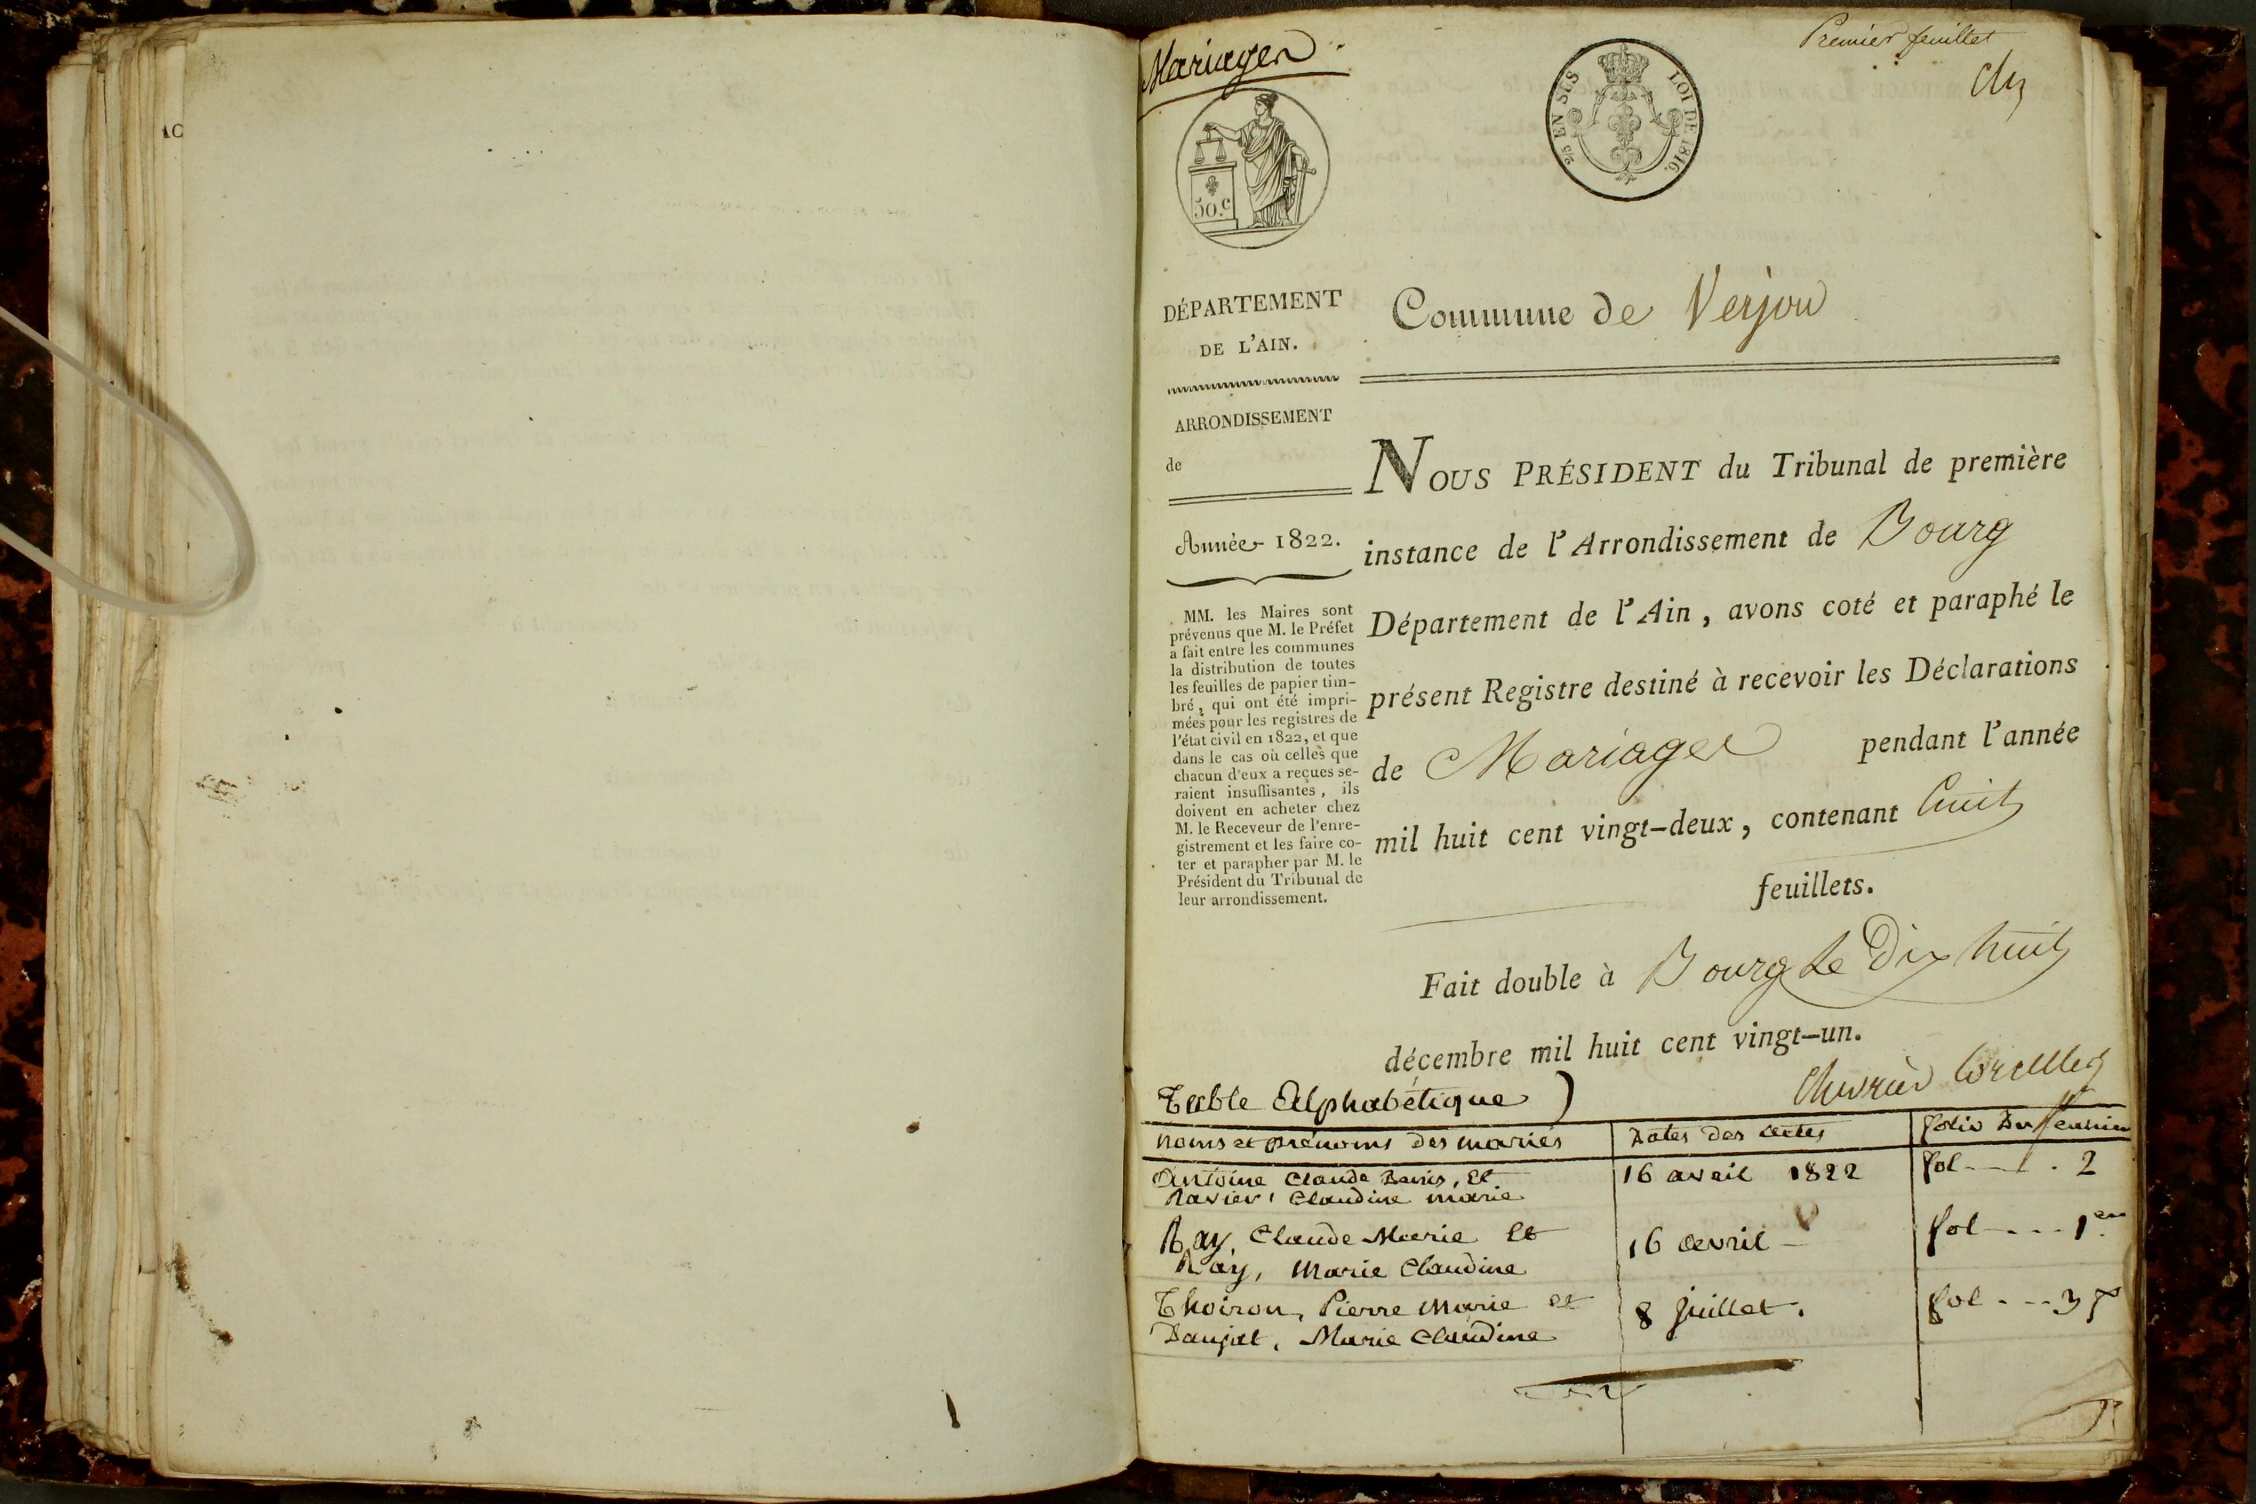 Mariages
Premier feuillet
25 EN SUS
LOI DE 1816.
50.c
DÉPARTEMENT
DE L'AIN.
Commune de Verjon
ARRONDISSEMENT
de
Année 1822.
MM. les Maires sont
prévenus que M. le Préfet
a fait entre les communes
la distribution de toutes
les feuilles de papier tim-
bré, qui ont été impri-
mées pour les registres de
l'état civil en 1822, et que
dans le cas où celles que
chacun d'eux a reçues se-
raient insuffisantes, ils
doivent en acheter chez
M. le Receveur de l'enre-
gistrement et les faire co-
ter et parapher par M. le
Président du Tribunal de
leur arrondissement.
NOUS PRÉSIDENT du Tribunal de première
instance de l'Arrondissement de Bourg
Département de l'Ain, avons coté et paraphé le
présent Registre destiné à recevoir les Déclarations
de Mariages pendant l'année
mil huit cent vingt-deux, contenant huit
feuillets.
Fait double à Bourg le Dix huit
décembre mil huit cent vingt-un.
Table Alphabétique
noms et prénoms des mariés Dates des actes folio Du
Antoine Claude Denis, et 16 avril 1822 fol 2
Ravier, Claudine marie
Ray, Claude Marie et 16 avril fol 1er
Ray, Marie Claudine
Thoiron, Pierre Marie et 8 juillet. fol 3
Daujat, Marie Claudine